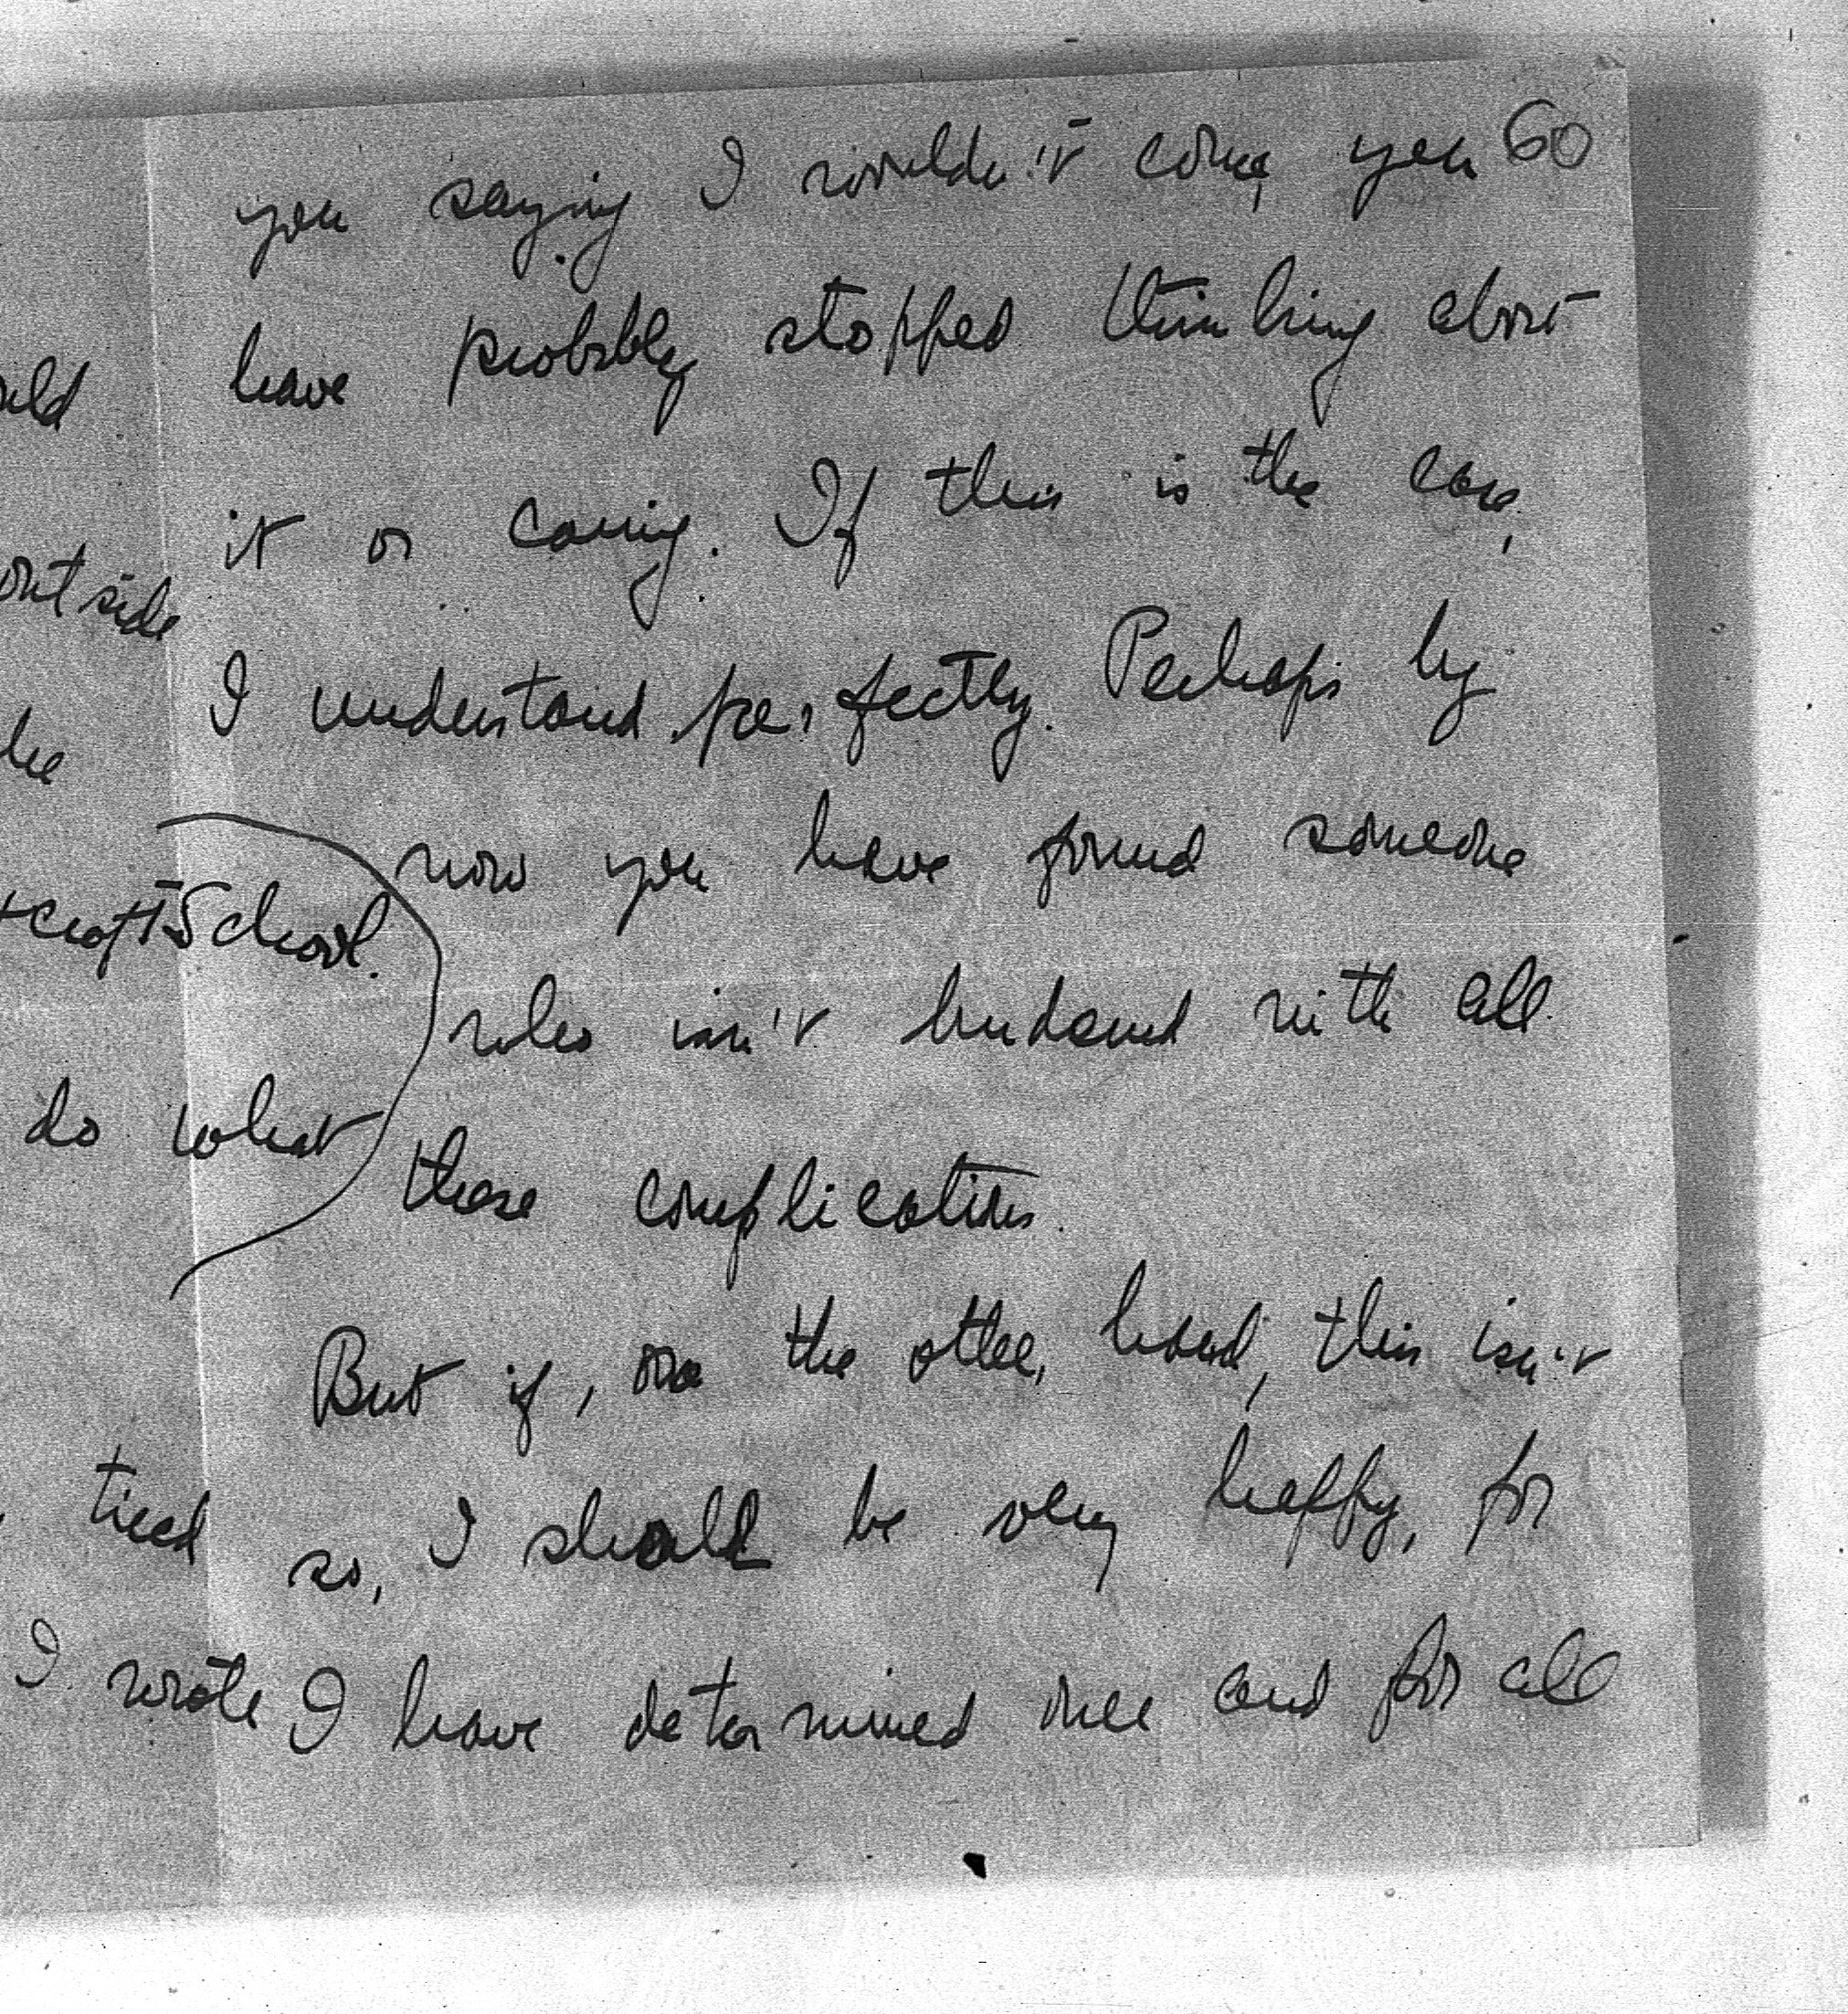 60
you saying I wouldn't come, you
have probably stopped thinking about
it or caring. If this is the case,
I understand perfectly. Perhaps by
now you have found someone
who isn't burdened with all
these complications.
But if, on the other hand, this isn't
so, I should be very happy, for
I have determined once and for all
outside
School.
do what
tired
I wrote